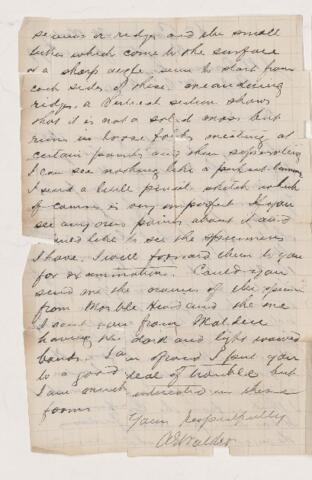 seams or ridges and the small
tubes which come to the surface
at a sharp angle seem to start from
each side of these meandering
ridges. a vertical section shows
that it is not a solid mass but
runs in loose folds meeting at
certain points and then separating
I can see nothing like a
I send a little pencil sketch which
of course is very imperfect. If you
see any points about it and
would like to see the specimens
I have, I will forward them to you
for examination. Could you
send me the names of the specimen
from Marble Head and the one
I sent you from Malden
having the dark and light waved
bands. I am afraid I put you
to a good deal of trouble but
I am much interested in these
forms
Yours Respectfully